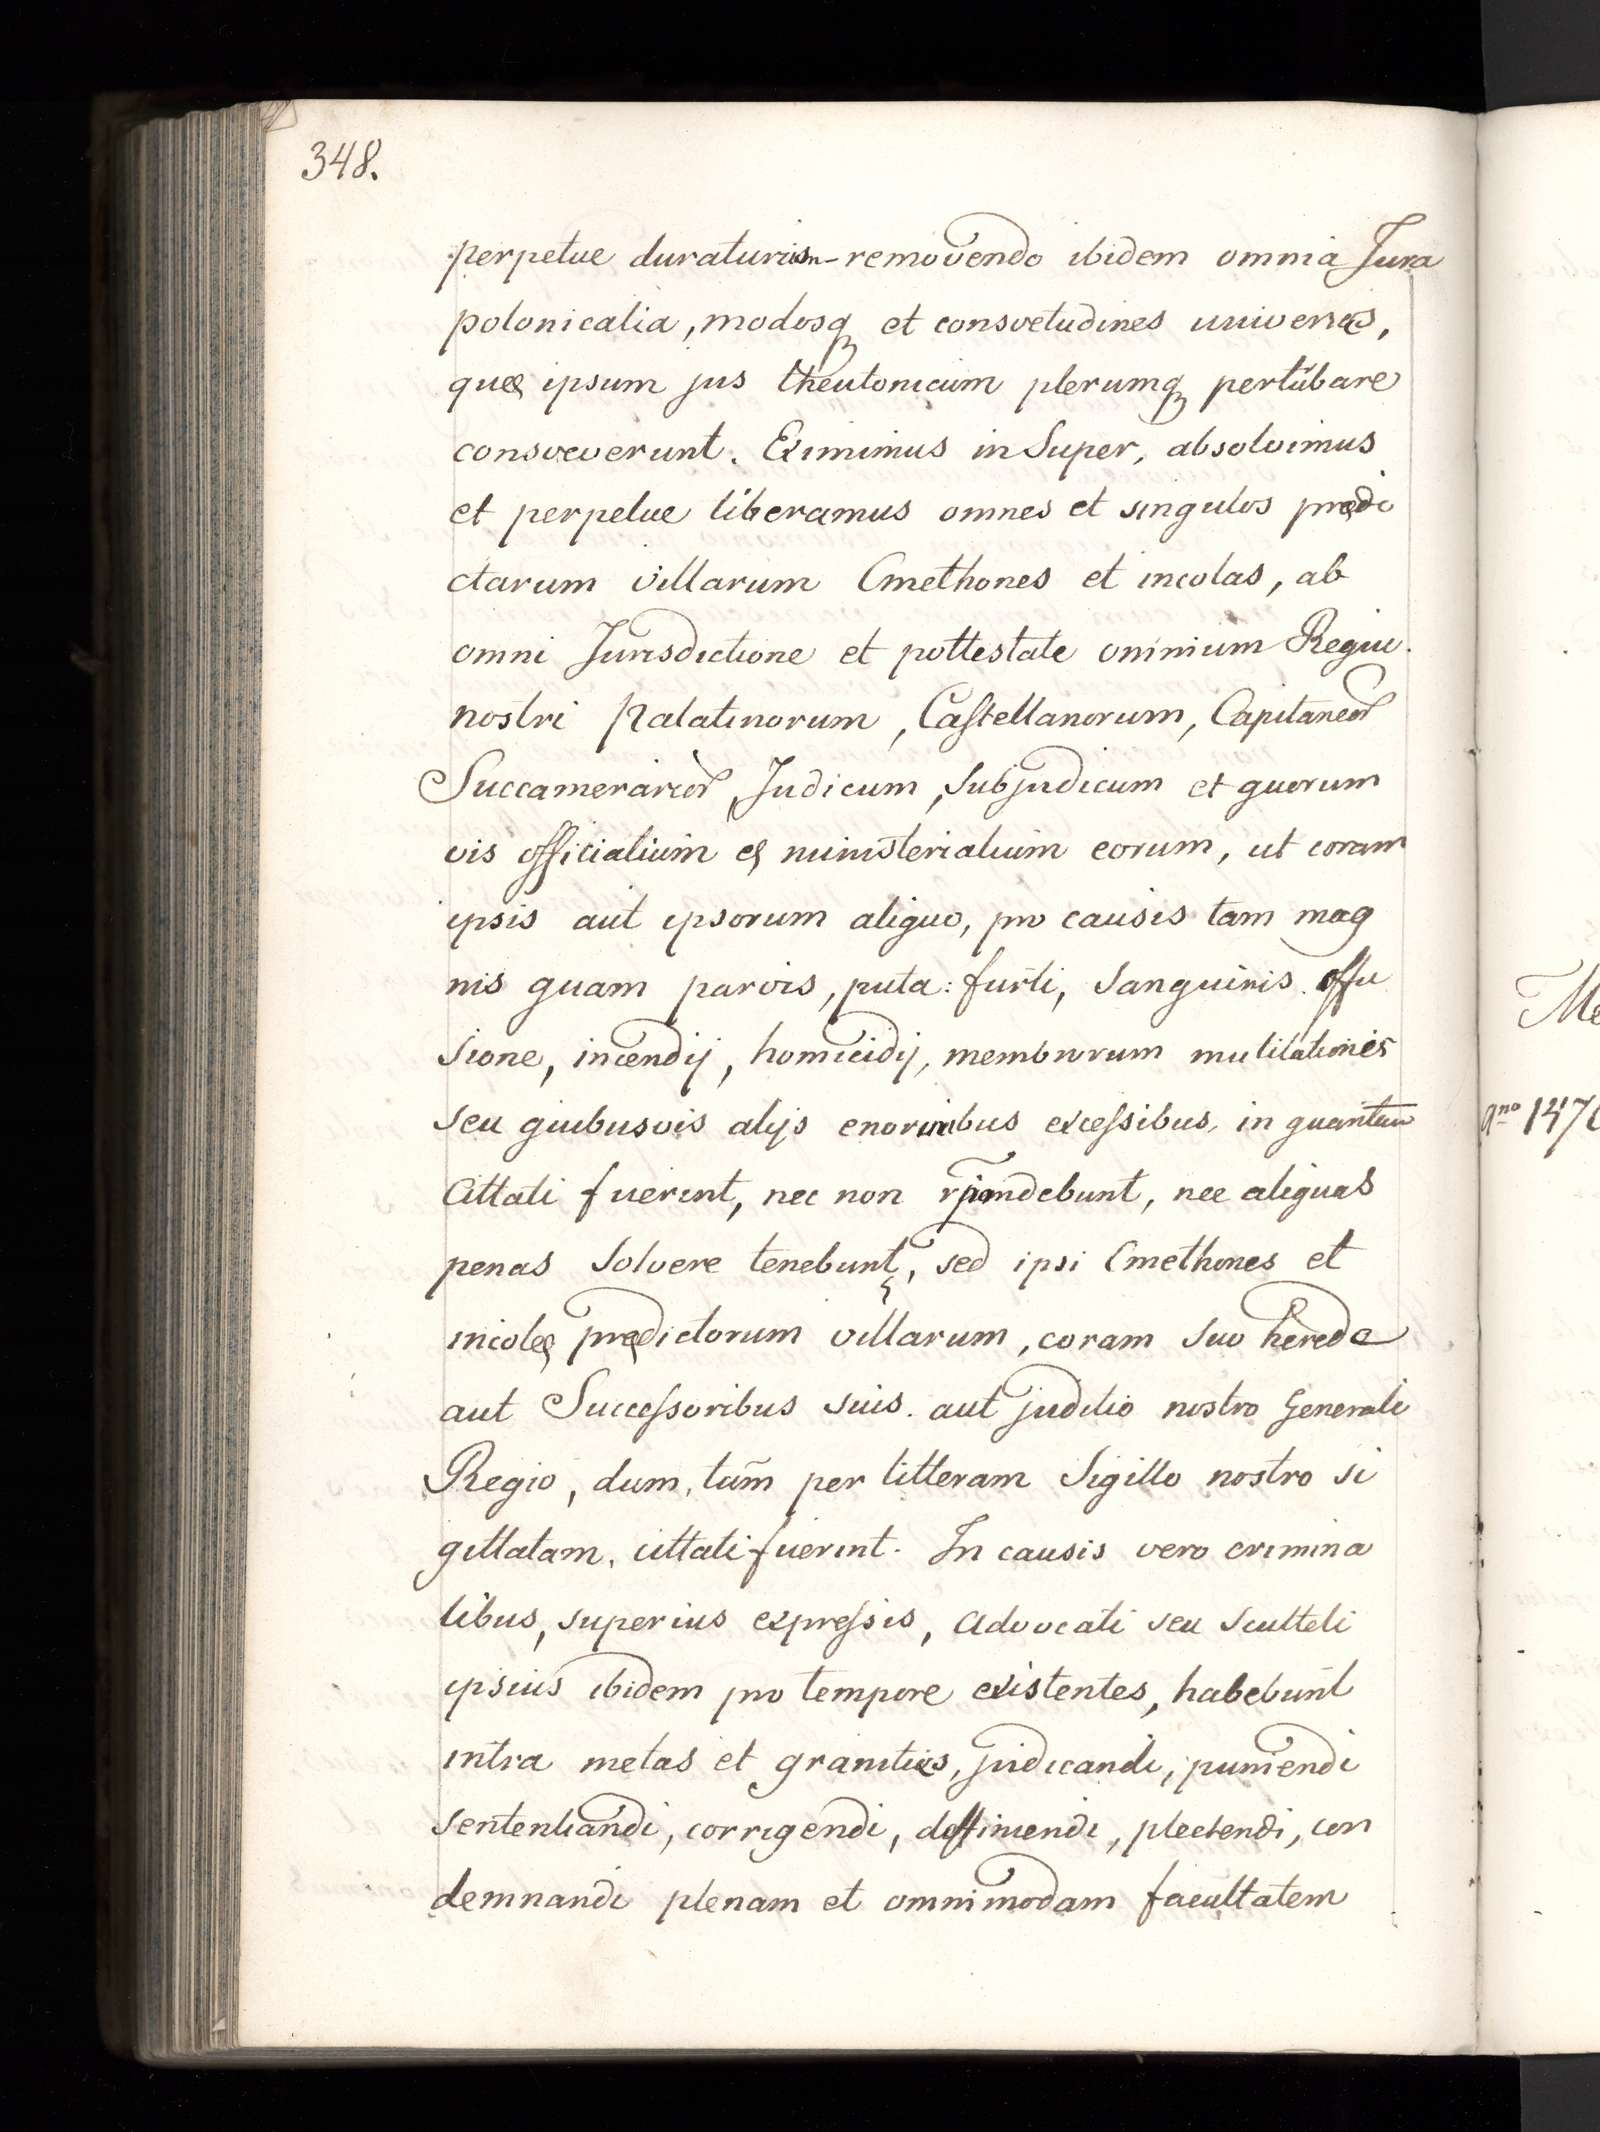 348.
perpetue duraturum - removendo ibidem omnia Jura
polonicalia, modosq et consvetudines universas,
quę ipsum jus theutonicum plerumq pertubare
consveverunt. Eximimus in Super, absolvimus
et perpetue liberamus omnes et singulos prędi
ctarum villarum Cmethones et incolas, ab
omni Jurisdictione et pottestate omnium Regni
nostri Palatinorum, Castellanorum, Capitaneor
Succamerarior, Judicum, Subjudicum et quorum
vis officialium et ministerialium eorum, ut coram
ipsis aut ipsorum aliquo, pro causis tam mag
nis quam parvis, puta: furti, Sanguinis effu
sione, incendij, homicidij, membrorum mutilationes
seu quibusvis alijs enormibus excessibus, in quantum
Cittati fuerint, nec non rpondebunt, nec aliquas
penas Solvere tenebunt, sed ipsi Cmethones et
incolę prędictorum villarum, coram suo herede
aut Successoribus suis. aut juditio nostro Generali
Regio, dum, tam̃ per litteram Sigillo nostro si
gillatam, cittati fuerint. In causis vero crimina
libus, superius expressis, Advocati seu Sculteti
ipsius ibidem pro tempore existentes, habebunt
intra metas et granities, judicandi, puniendi
sententiandi, corrigendi, diffiniendi, plectendi, con
demnandi plenam et omnimodam facultatem
Me
Ano 147